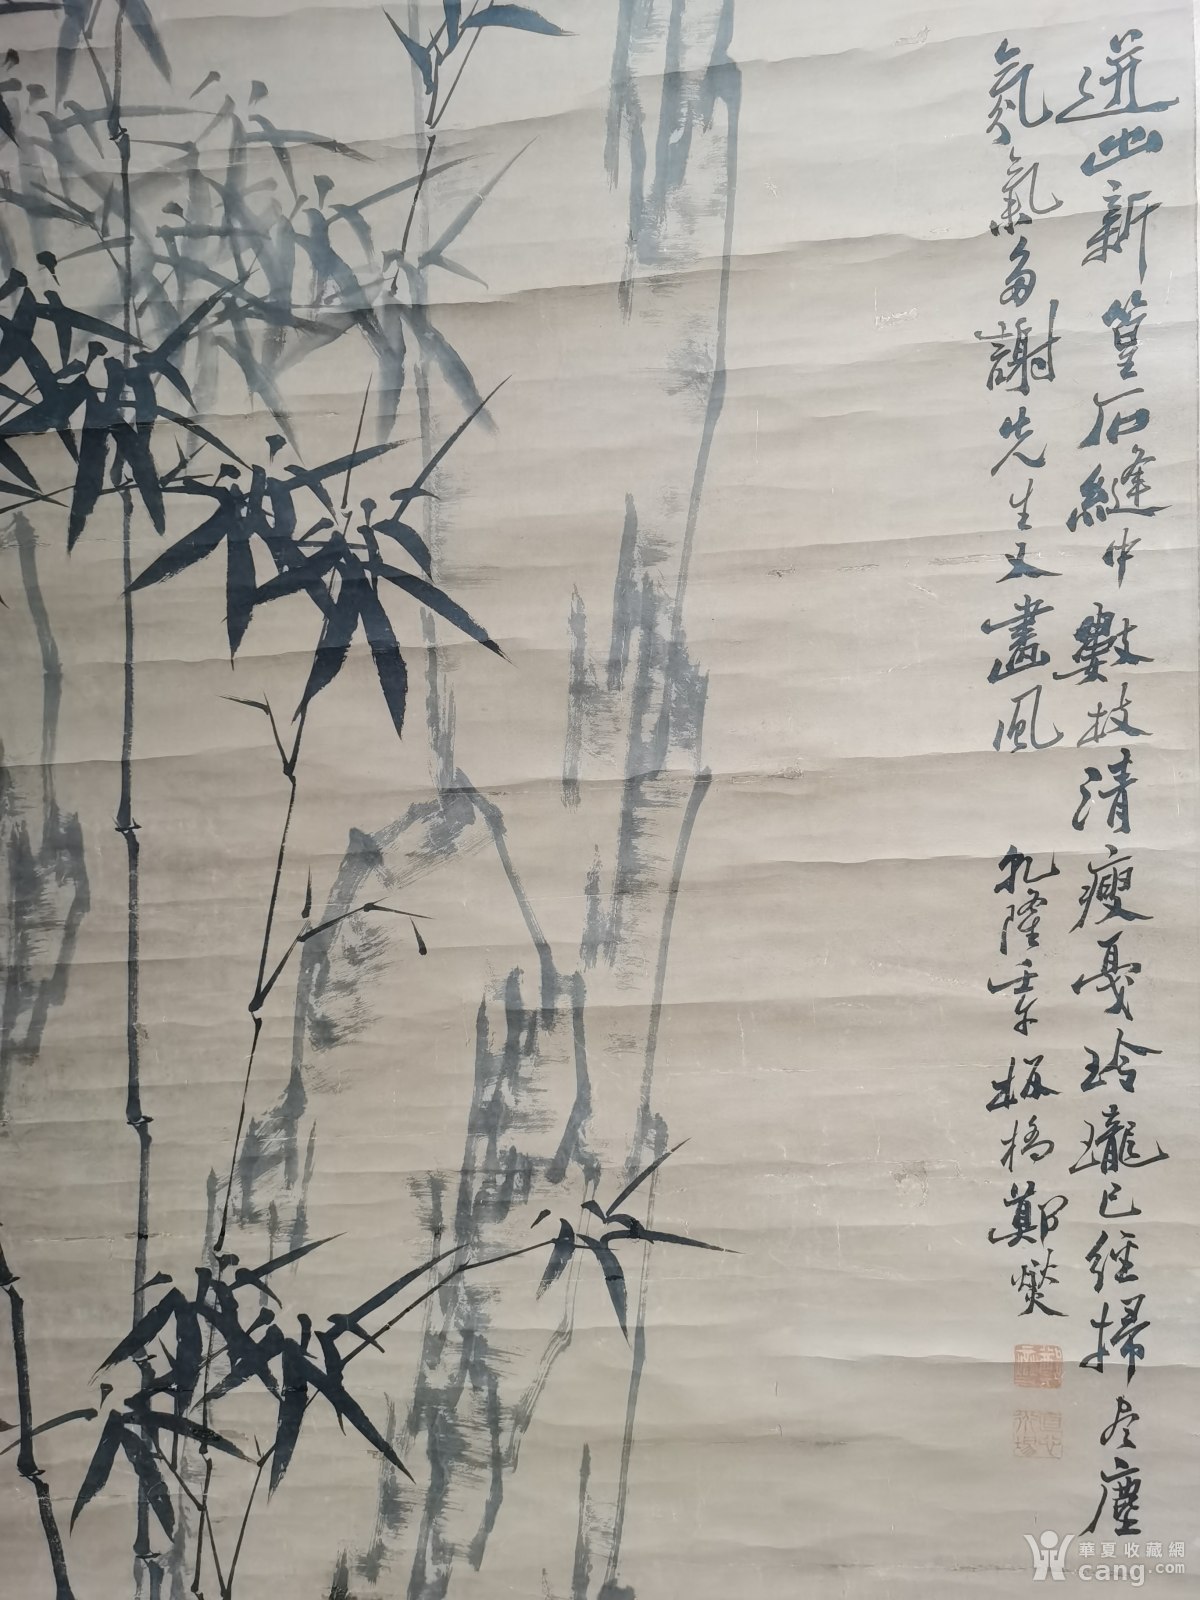 迸出新篁石縫中數枝清瘦戛玲瓏已經掃盡塵
氛氣多謝先生又畫風
乾隆壬午板橋鄭燮
華夏收藏網
cang.com